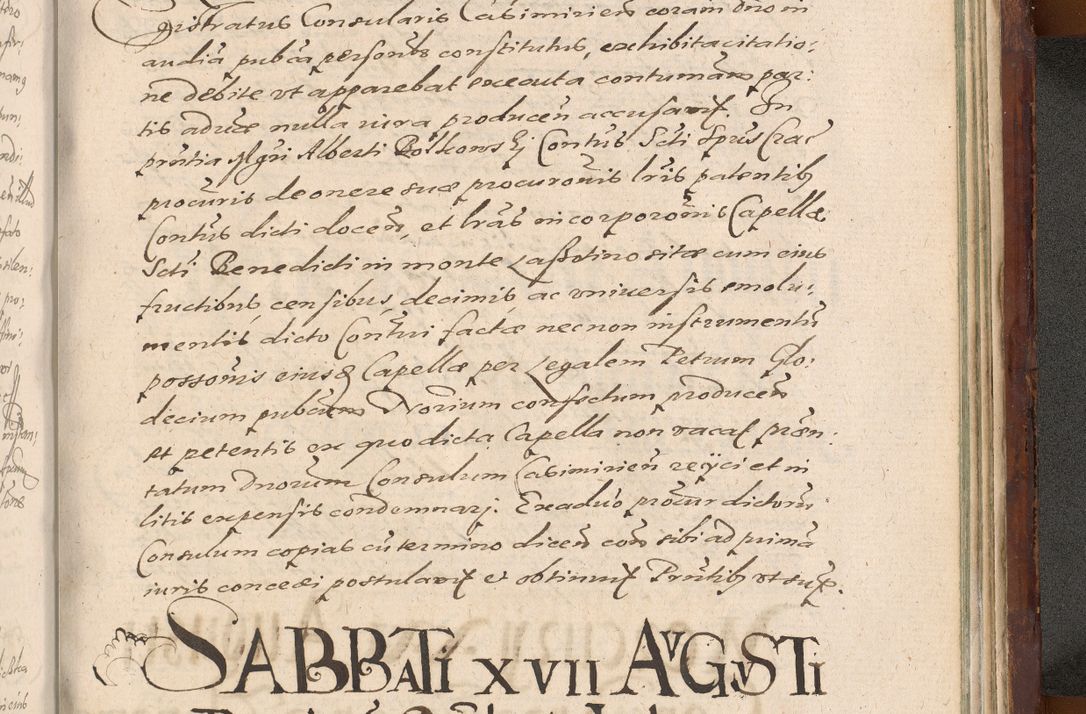 gistratus Consularis Casimirien coram dno in
audia pubca personbs constitutus, exhibita citatio:
ne debite vt apparebat executa contumam par:
tis adue nulla iura producen accusavit. In
pntia Mgri Alberti Conts Scti Spus Crac
procuris de onere suæ procuronis lris patentib
Contus dicti docen, et lras incorporonis Capellæ
Scti Benedicti in monte Lassotino sitæ cum eius
fructibus, censibus, decimis, ac vniuersis emolu:
mentis, dicto Contui factæ nec non instrumentu
possonis eiusq Capellæ per Legalem Petrum Glo:
decium pubcum Norium confectum producen
et petentis ex quo dicta Capella non vacat præn:
tatum Dnorum Consulum Casimirien reijci et in
litis expensis condemnarj. Ex aduo procur dictoru
Consulum copias cu termino dicen con sibi ad prima
iuris concedi postulavit et obtinuit Prntib vt sup.
SABBATI XVII AVGVSTI